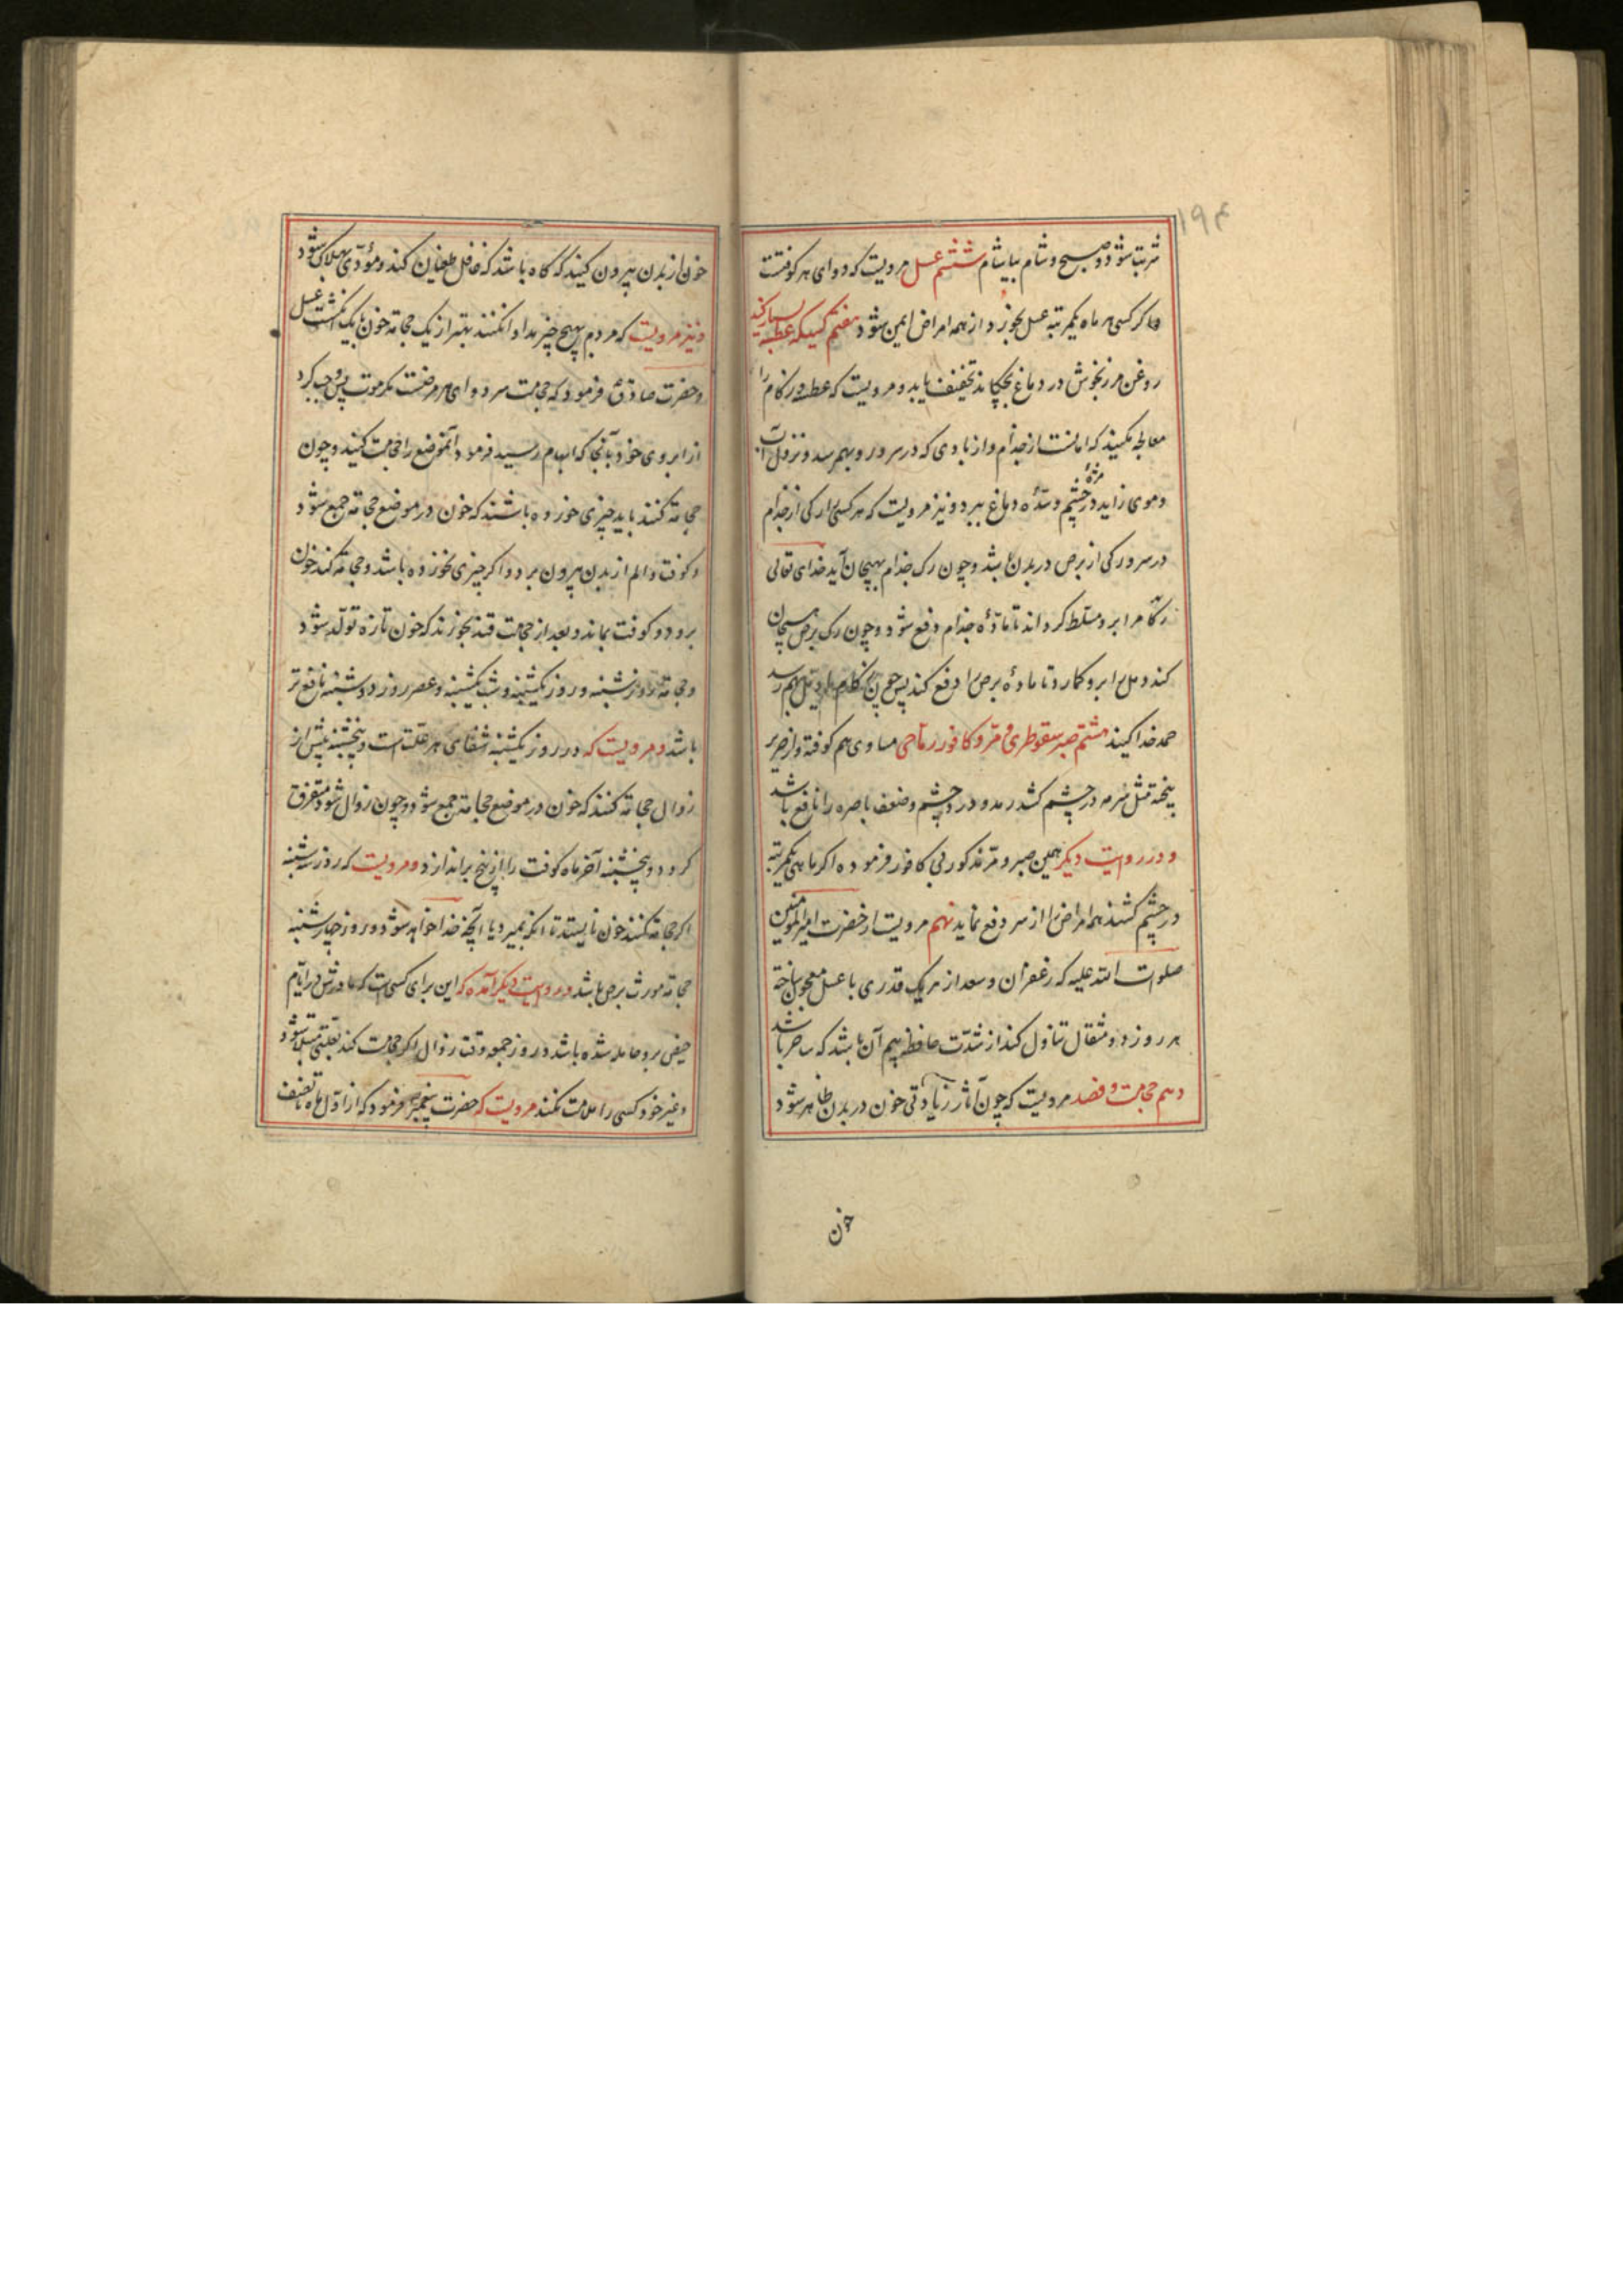 ۱۹۴
شربتا شود و صبح و شام بیاشام ششم عسل مرویست که دوای هر کوفتست
و اکر کسی هر ماه یکمرتبه عسل بخورد از همه امراض ایمن شود هفتم کسیکه عطسه بسیار کند
روغن مرزنجوش در دماغ بچکاند تخفیف یابد و مرویست که عطسه و زکام را
معالجه مکنید که امانست از جذام و از بادی که در سر و رو بهم رسد و نزول آب
و موی زاید در چشم و سدّهٔ دماغ ببرد و نیز مرویست که هر کسی را رکی از جذام
در سر و رکی از برص در بدن باشد و چون رک جذام بهیجان آید خدای تعالی
زکام را برو مسلط کرداند تا مادّهٔ جذام دفع شود و چون رک برص هیجان
کند دمل را برو کمارد تا مادهٔ برص را دفع کند پس چون زکام یا دمل بهم رسد
حمد خدا کنید هشتم صبر سقوطری و مرّ و کافور ریاحی مساوی هم کوفته و از حریر
بیخته مثل سرمه در چشم کشد رمد و درد چشم و ضعف باصره را نافع باشد
و در روایت دیکر همین صبر و مرّ مذکور بی کافور فرموده اکر ماهی یکمرتبه
در چشم کشند همه امراض را از سر دفع نماید نهم مرویست از حضرت امیر المومنین
صلوات الله علیه که زعفران و سعد از هر یک قدری با عسل معجون ساخته
هر روز دو مثقال تناول کند از شدّت حافظه بیم آن باشد که ساحر باشد
دهم حجامت و فصد مرویست که چون آثار زیادتی خون در بدن ظاهر شود
خون
خون از بدن بیرون کنید که کاه باشد که غافل طغیان کند و مؤدّی بهلاک شود
و نیز مرویست که مردم بهیچ چیز مداوا نکنند بهتر از یک حجامة خون یا یک انکشت عسل
و حضرت صادق فرمود که حجامت سر دوای هر مرضست مکر موت پس وجب کرد
از ابروی خود بآنجا که ابهام رسید فرمود آنموضع را حجامت کنید و چون
حجامة کنند باید چیزی خورده باشند که خون در موضع حجامة جمع شود
و کوفت و الم از بدن بیرون برد و اکر چیزی نخورده باشد و حجامة کند خون
برود و کوفت بماند و بعد از حجامت قند بخورند که خون تازه تولّد شود
و حجامة روز شنبه و روز یکشنبه و شب یکشنبه و عصر روز دوشنبه نافع تر
باشد و مرویست که در روز یکشنبه شفای هر علّت است و پنجشنبه پیش از
زوال حجامة کنند که خون در موضع حجامة جمع شود و چون زوال شود متفرق
کردد و پنجشنبه آخر ماه کوفت را از بیخ براندازد و مرویست که روز سه شنبه
اکر حجامة کنند خون نایستد تا آنکه بمیرد یا آنچه خدا خواهد شود و روز چهارشنبه
حجامة مورث برص باشد و در روایت دیکر آمده که این برای کسیست که مادرش در ایّام
حیض برو حامله شده باشد و روز جمعه وقت زوال اکر حجامت کند بعلّتی مبتلا شود
و غیر خود کسی را ملامت نکند مرویست که حضرت پیغمبر فرمود که از اوّل ماه تا نصف